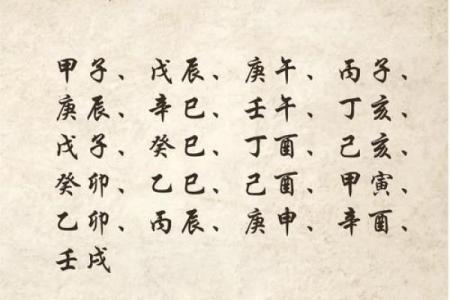 甲子、戊辰、庚午、丙子、
庚辰、辛巳、壬午、丁亥、
戊子、癸巳、丁酉、己亥、
癸卯、乙巳、己酉、甲寅、
乙卯、丙辰、庚申、辛酉、
壬戌